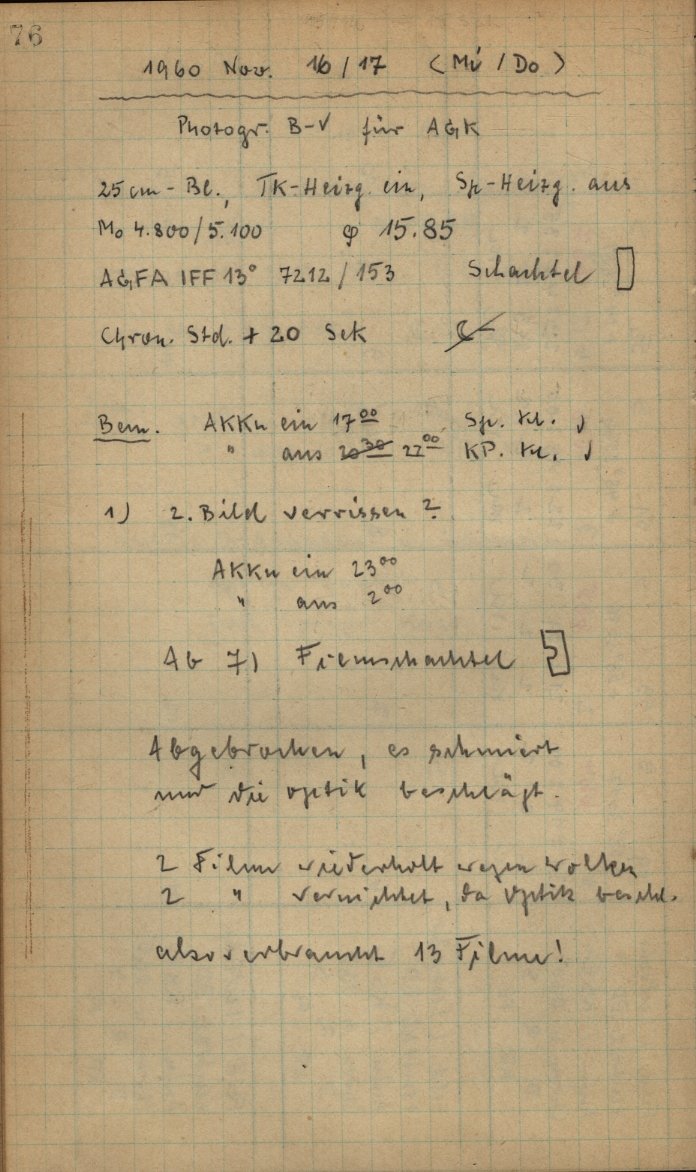 76
1960 Nov. 16/17 (Mi / Do)
Photogr. B-V für AGK
25 cm - Bl., TK-Heizg. ein, Sp-Heizg. aus
Mo 4.800/5.100 φ 15.85
AGFA IFF 13° 7212/153 Schachtel
Chron. Std. + 20 Sek
Bem. AKKu ein 17⁰⁰ Sp. Kl.
" aus 20³⁰ 22⁰⁰ KP. Kl.
1) 2. Bild verrissen ?
AKKu ein 23⁰⁰
" aus 2⁰⁰
Ab 7) Filmschachtel
Abgebrochen, es schmiert
und die Optik beschlägt.
2 Filme wiederholt wegen Wolken
2 " vernichtet, da Optik beschl.
also verbraucht 13 Filme!